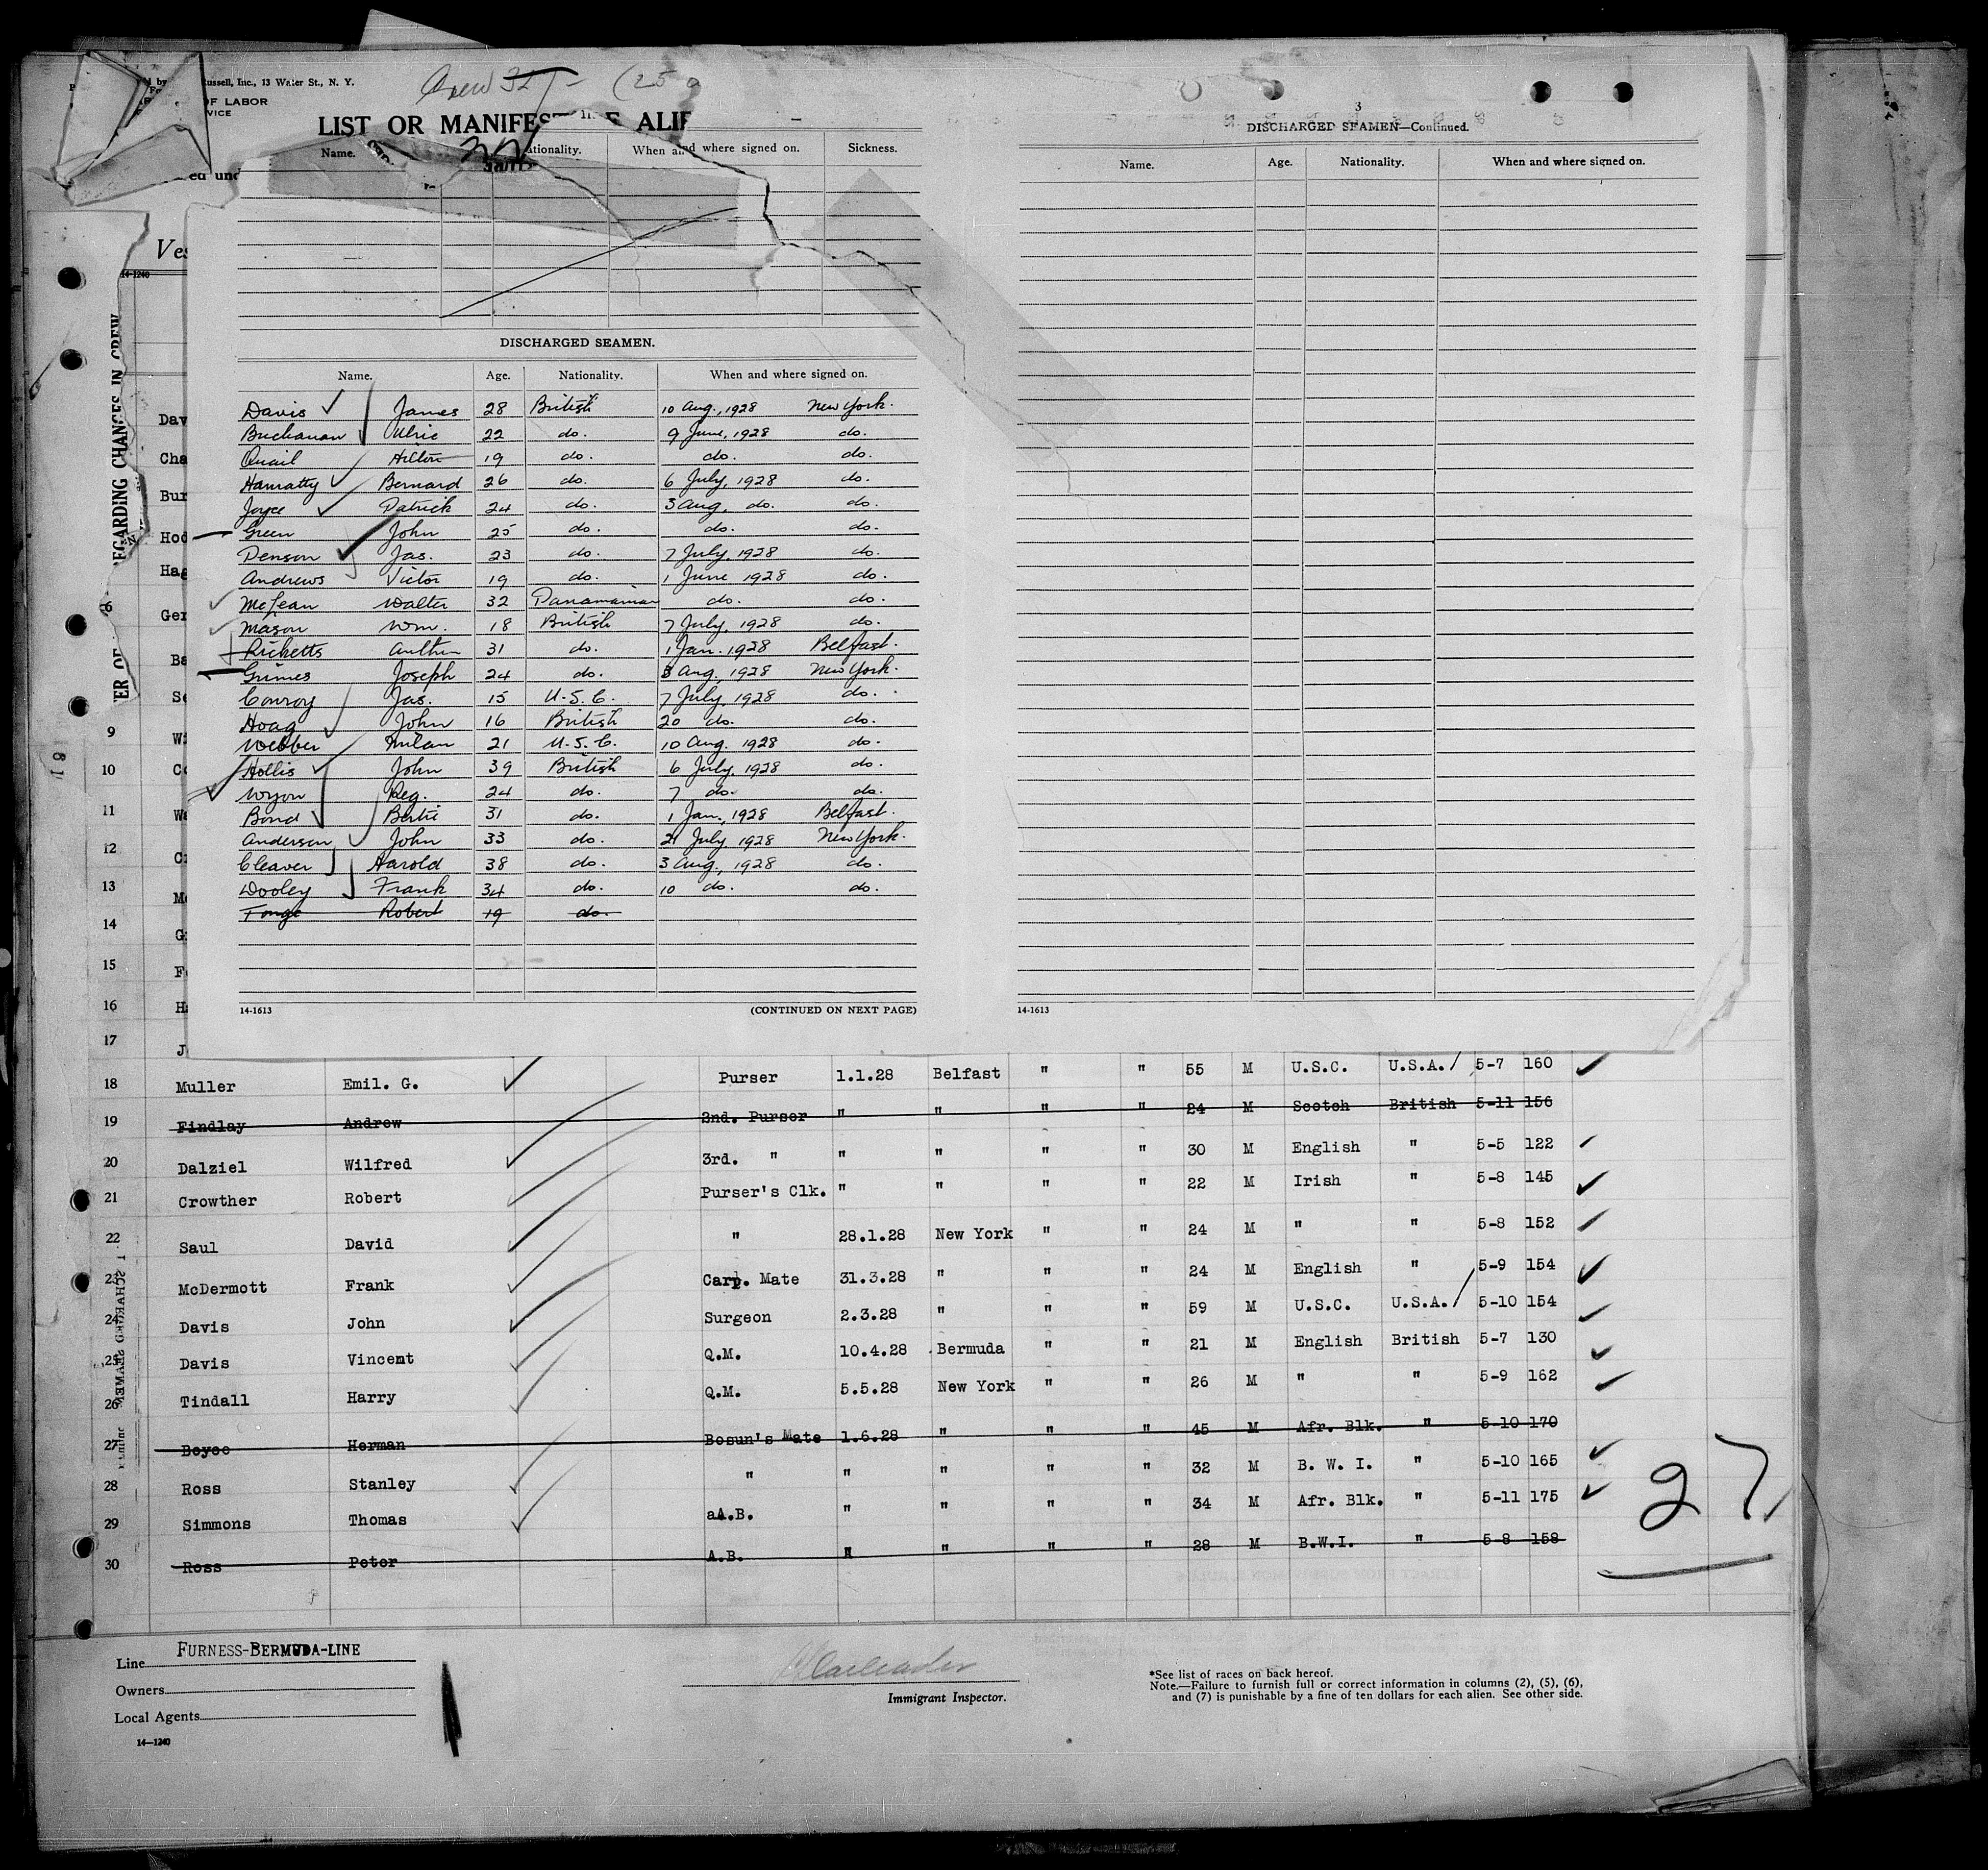 Russell, Inc., 13 Water St., N. Y.
OF LABOR
VICE
Crew 32
LIST OR MANIFEST OF ALIE
ed und
Ves
14-1240
Name. Nationality. When and where signed on. Sickness.
DISCHARGED SEAMEN.
Name. Age. Nationality. When and where signed on.
Davis James 28 British 10 Aug., 1928 New York.
Buchanan Ulric 22 do. 9 June, 1928 do.
Quail Hilton 19 do. do. do.
Hanratty Bernard 26 do. 6 July, 1928 do.
Joyce Patrick 24 do. 3 Aug. do. do.
Green John 25 do. do. do.
Denson Jas. 23 do. 7 July, 1928 do.
Andrews Victor 19 do. 1 June 1928 do.
McLean Walter 32 Panamanian do. do.
Mason Wm. 18 British 7 July, 1928 do.
Ricketts Arthur 31 do. 1 Jan. 1928 Belfast.
Grimes Joseph 24 do. 3 Aug., 1928 New York.
Conroy Jas. 15 U.S.C. 7 July, 1928 do.
Hoag John 16 British 20 do. do.
Webber Milan 21 U.S.C. 10 Aug. 1928 do.
Hollis John 39 British 6 July, 1928 do.
Wyon Reg. 24 do. 7 do. do.
Bond Bertie 31 do. 1 Jan., 1928 Belfast.
Anderson John 33 do. 21 July 1928 New York.
Cleaver Harold 38 do. 3 Aug., 1928 do.
Wooley Frank 34 do. 10 do. do.
Tonge Robert 19 do.
14-1613 (CONTINUED ON NEXT PAGE)
3
DISCHARGED SEAMEN—Continued.
Name. Age. Nationality. When and where signed on.
14-1613
EGARDING CHANGES IN CREW
ER OF
Dav
Cha
Bur
Hod
Hag
6 Ger
Ba
Se
9 Wi
10 Co
11 Wa
12 Cr
13 Mc
14 G
15 Fo
16 Ha
17 J
18 Muller Emil. G. Purser 1.1.28 Belfast " " 55 M U.S.C. U.S.A. 5-7 160
19 Findlay Andrew 2nd. Purser " " " " 24 M Scotch British 5-11 156
20 Dalziel Wilfred 3rd. " " " " " 30 M English " 5-5 122
21 Crowther Robert Purser's Clk. " " " " 22 M Irish " 5-8 145
22 Saul David " 28.1.28 New York " " 24 M " " 5-8 152
23 McDermott Frank Carp. Mate 31.3.28 " " " 24 M English " 5-9 154
24 Davis John Surgeon 2.3.28 " " " 59 M U.S.C. U.S.A. 5-10 154
25 Davis Vincent Q.M. 10.4.28 Bermuda " " 21 M English British 5-7 130
26 Tindall Harry Q.M. 5.5.28 New York " " 26 M " " 5-9 162
27 Boyce Herman Bosun's Mate 1.6.28 " " " 45 M Afr. Blk. " 5-10 170
28 Ross Stanley " " " " " 32 M B. W. I. " 5-10 165
29 Simmons Thomas aA.B. " " " " 34 M Afr. Blk. " 5-11 175
30 Ross Peter A.B. " " " " 28 M B.W.I. " 5-8 158
27
Line FURNESS-BERMUDA-LINE
Owners
Local Agents
14—1240
Immigrant Inspector.
*See list of races on back hereof.
Note.—Failure to furnish full or correct information in columns (2), (5), (6),
and (7) is punishable by a fine of ten dollars for each alien. See other side.